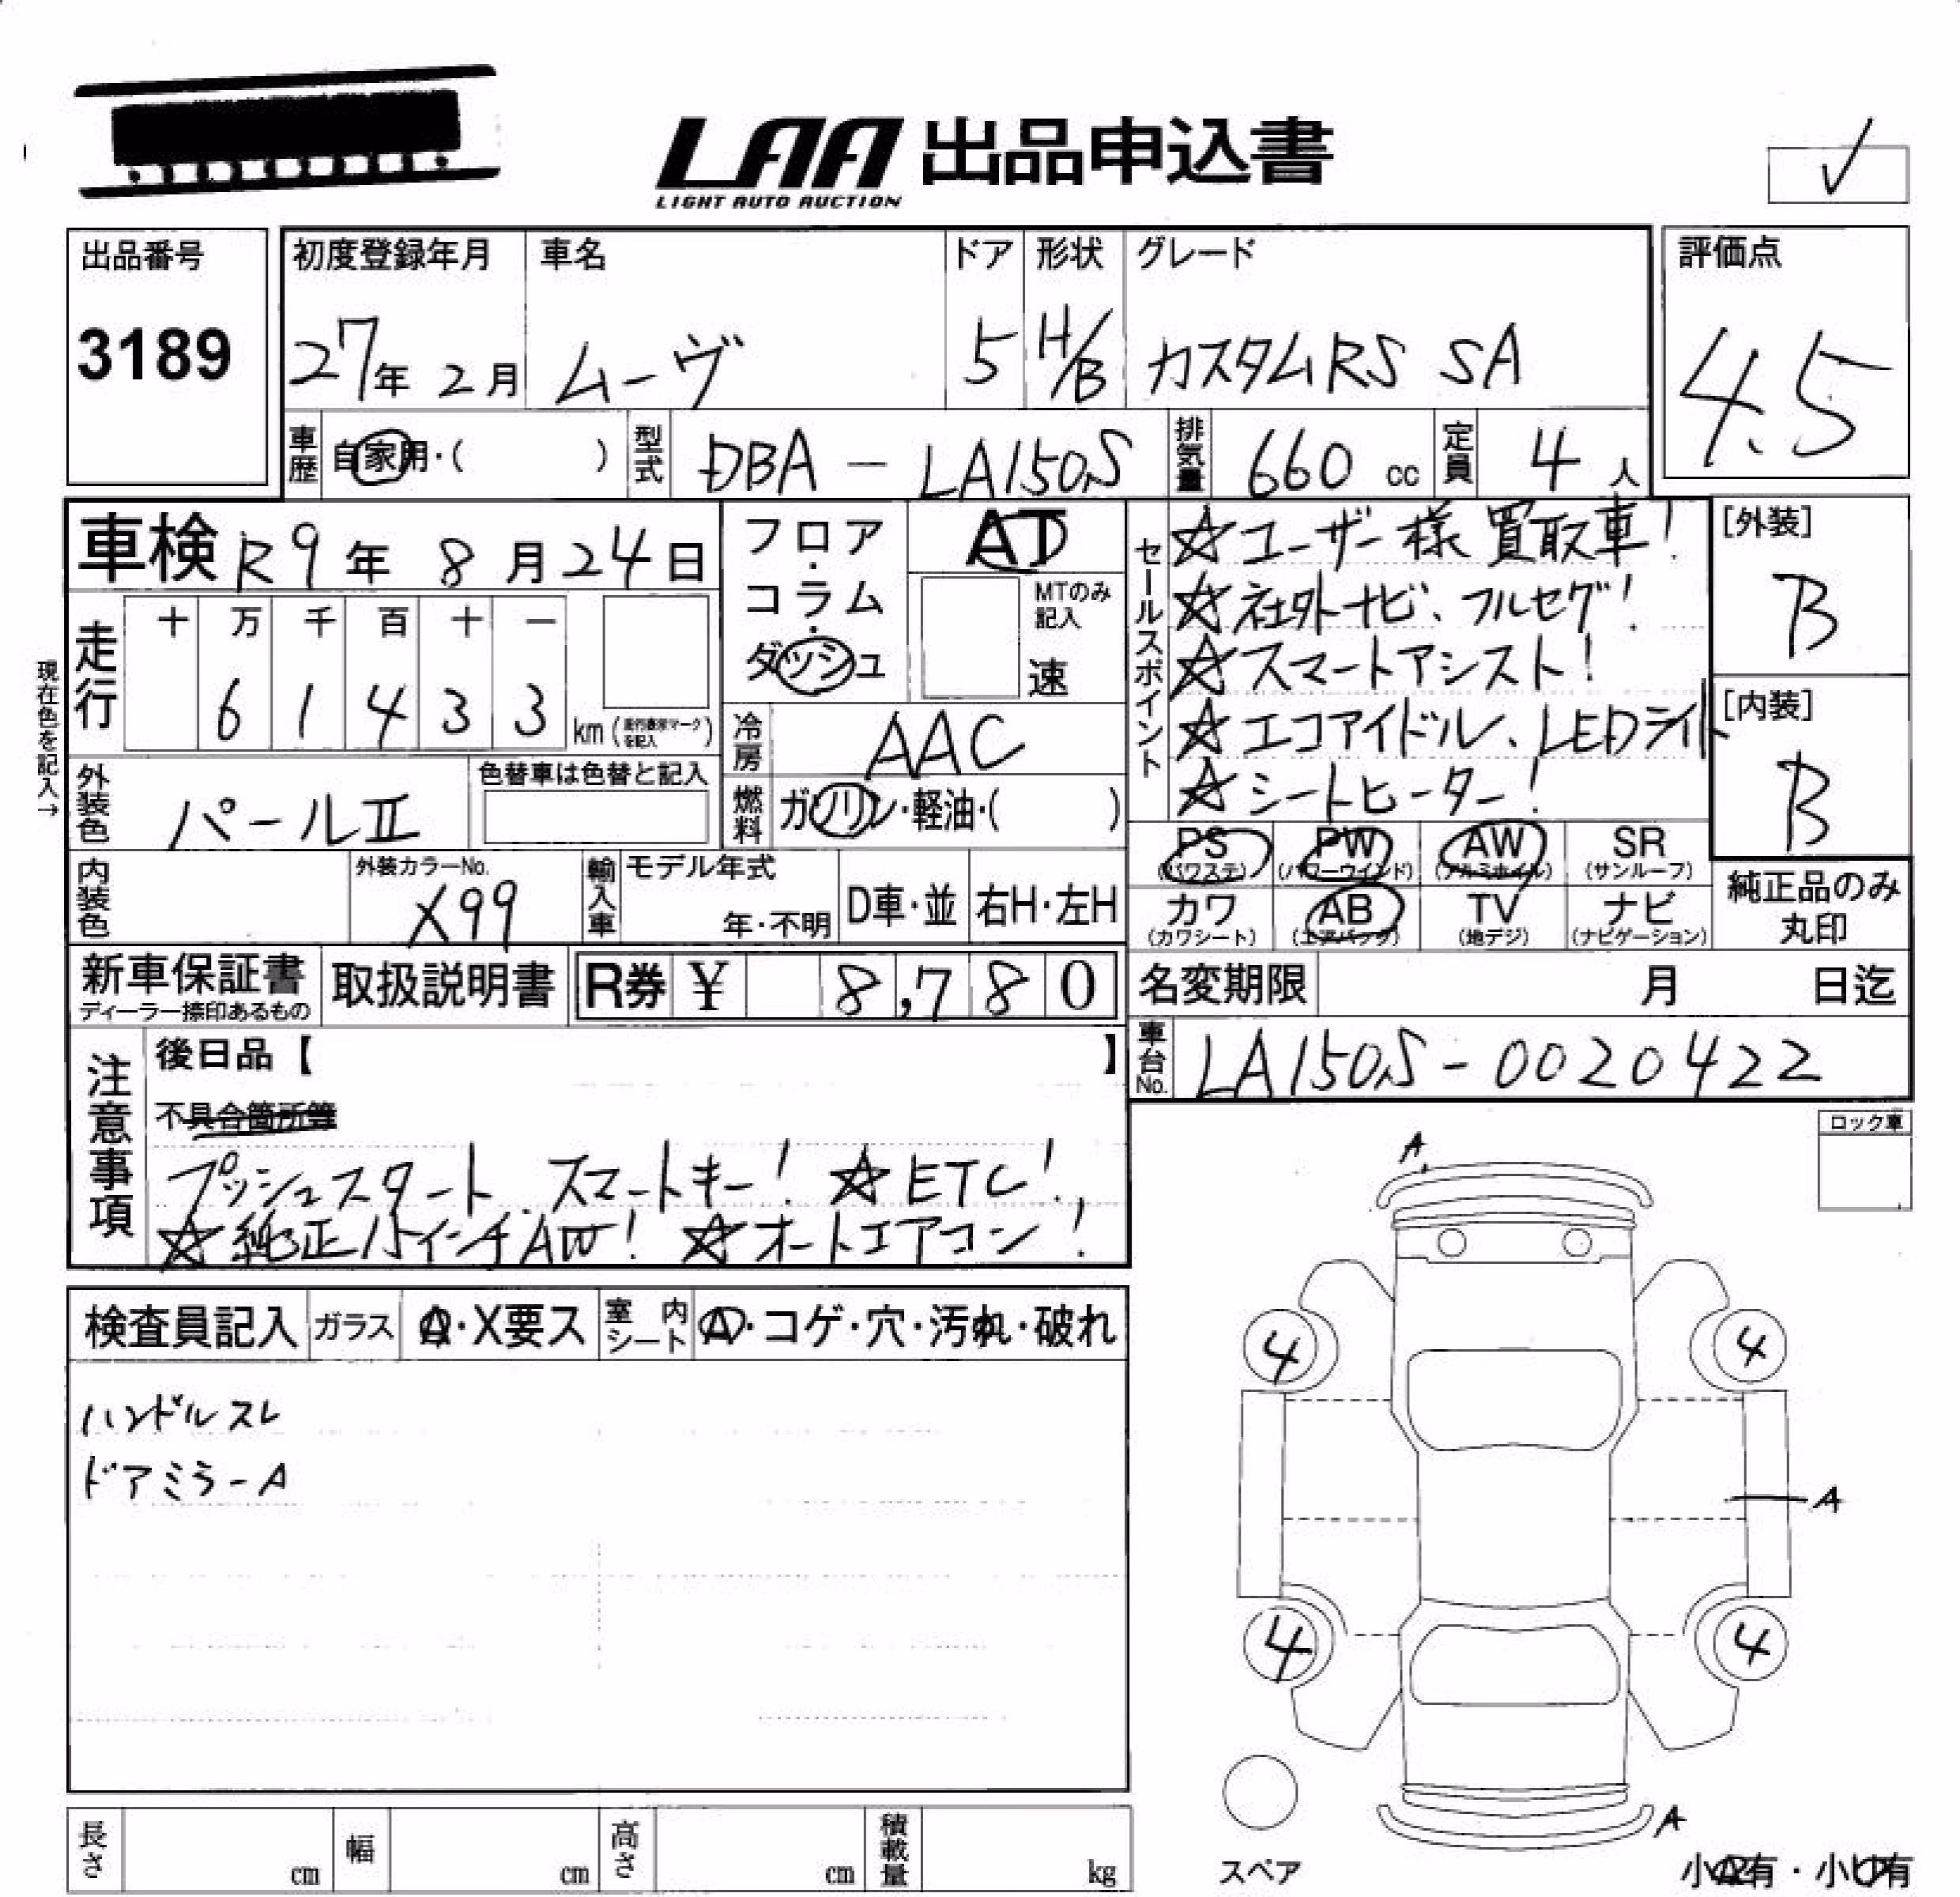 LAA 出品申込書
LIGHT AUTO AUCTION
出品番号
3189
初度登録年月 車名 ドア 形状 グレード
27年 2月 ムーヴ 5 H/B カスタムRS SA
評価点
4.5
車歴 自家用・( ) 型式 DBA - LA150S 排気量 660 cc 定員 4人
車検 R9年 8月24日
フロア・コラム・ダッシュ
AT
MTのみ記入
速
現在色を記入→
走行 十 万 千 百 十 一
6 1 4 3 3 km
冷房 AAC
外装色 パールⅡ
色替車は色替と記入
燃料 ガソリン・軽油・( )
セールスポイント
☆ユーザー様買取車!
☆社外ナビ、フルセグ!
☆スマートアシスト!
☆エコアイドル、LEDライト
☆シートヒーター!
[外装]
B
[内装]
B
PS PW AW SR
(パワステ) (パワーウインド) (アルミホイル) (サンルーフ)
カワ AB TV ナビ
(カワシート) (エアバッグ) (地デジ) (ナビゲーション)
純正品のみ
丸印
内装色
外装カラーNo.
X99
輸入車 モデル年式
年・不明 D車・並 右H・左H
新車保証書
ディーラー捺印あるもの
取扱説明書 R券 ¥ 8,780
名変期限 月 日迄
車台No. LA150S-0020422
注意事項
後日品【 】
不具合箇所等
プッシュスタート、スマートキー! ☆ETC!
☆純正15インチAW! ☆オートエアコン!
ロック車
検査員記入 ガラス A・X要ス 室内シート A・コゲ・穴・汚れ・破れ
ハンドルスレ
ドアミラーA
A
4 4
A
4 4
A
スペア
長さ cm 幅 cm 高さ cm 積載量 kg